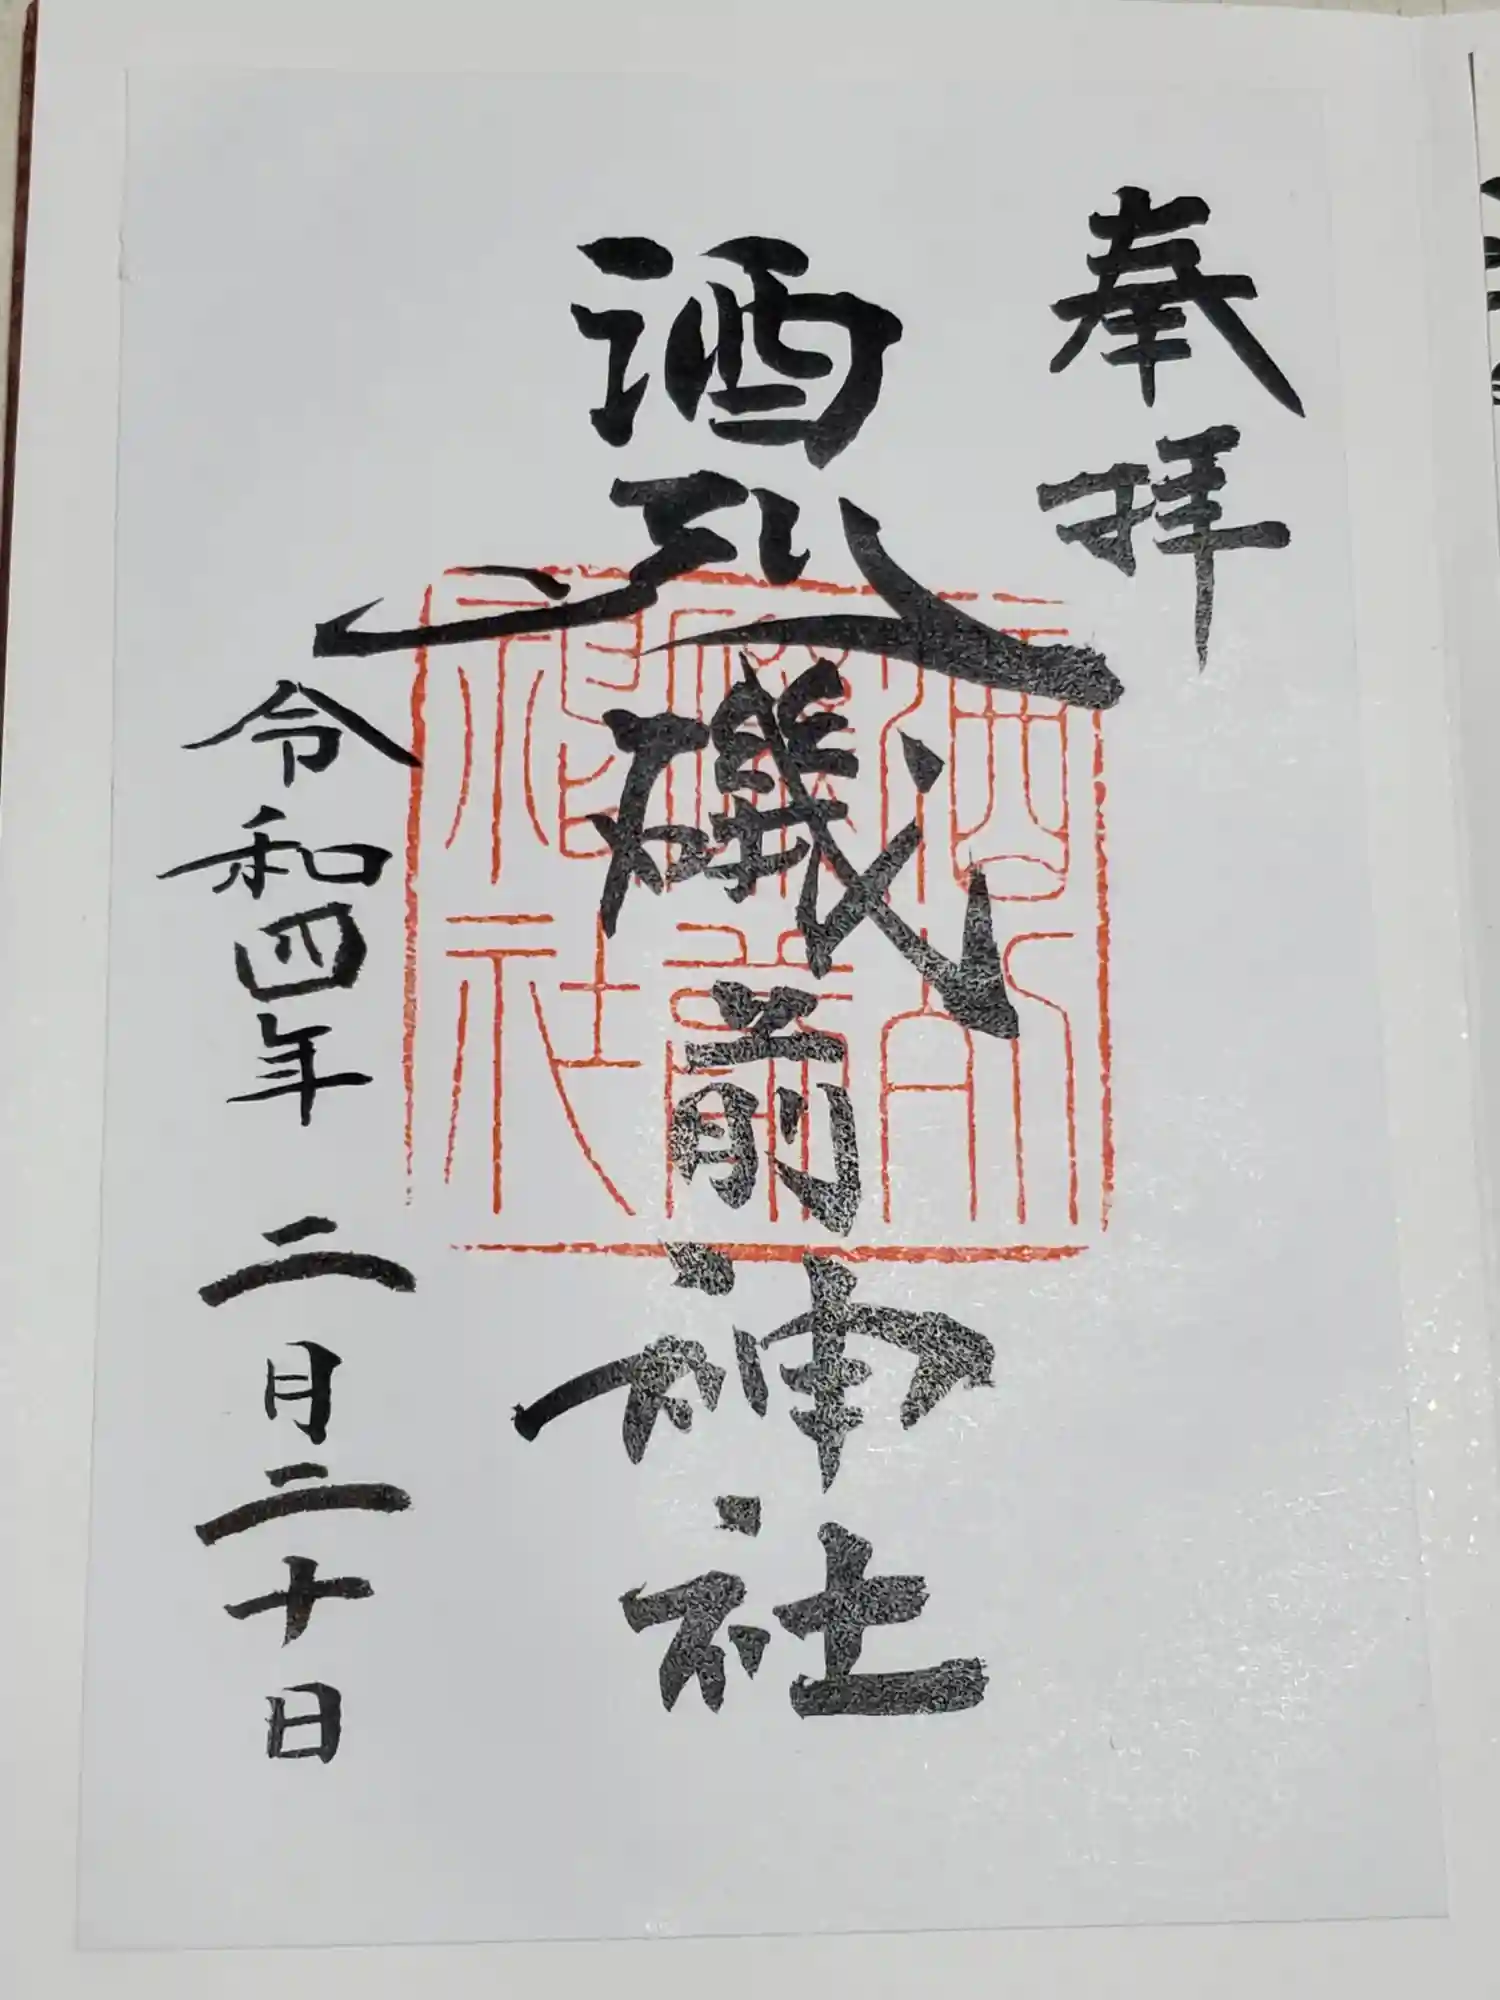 奉拝
酒列磯前神社
令和四年 二月二十日
酒列
磯前
神社